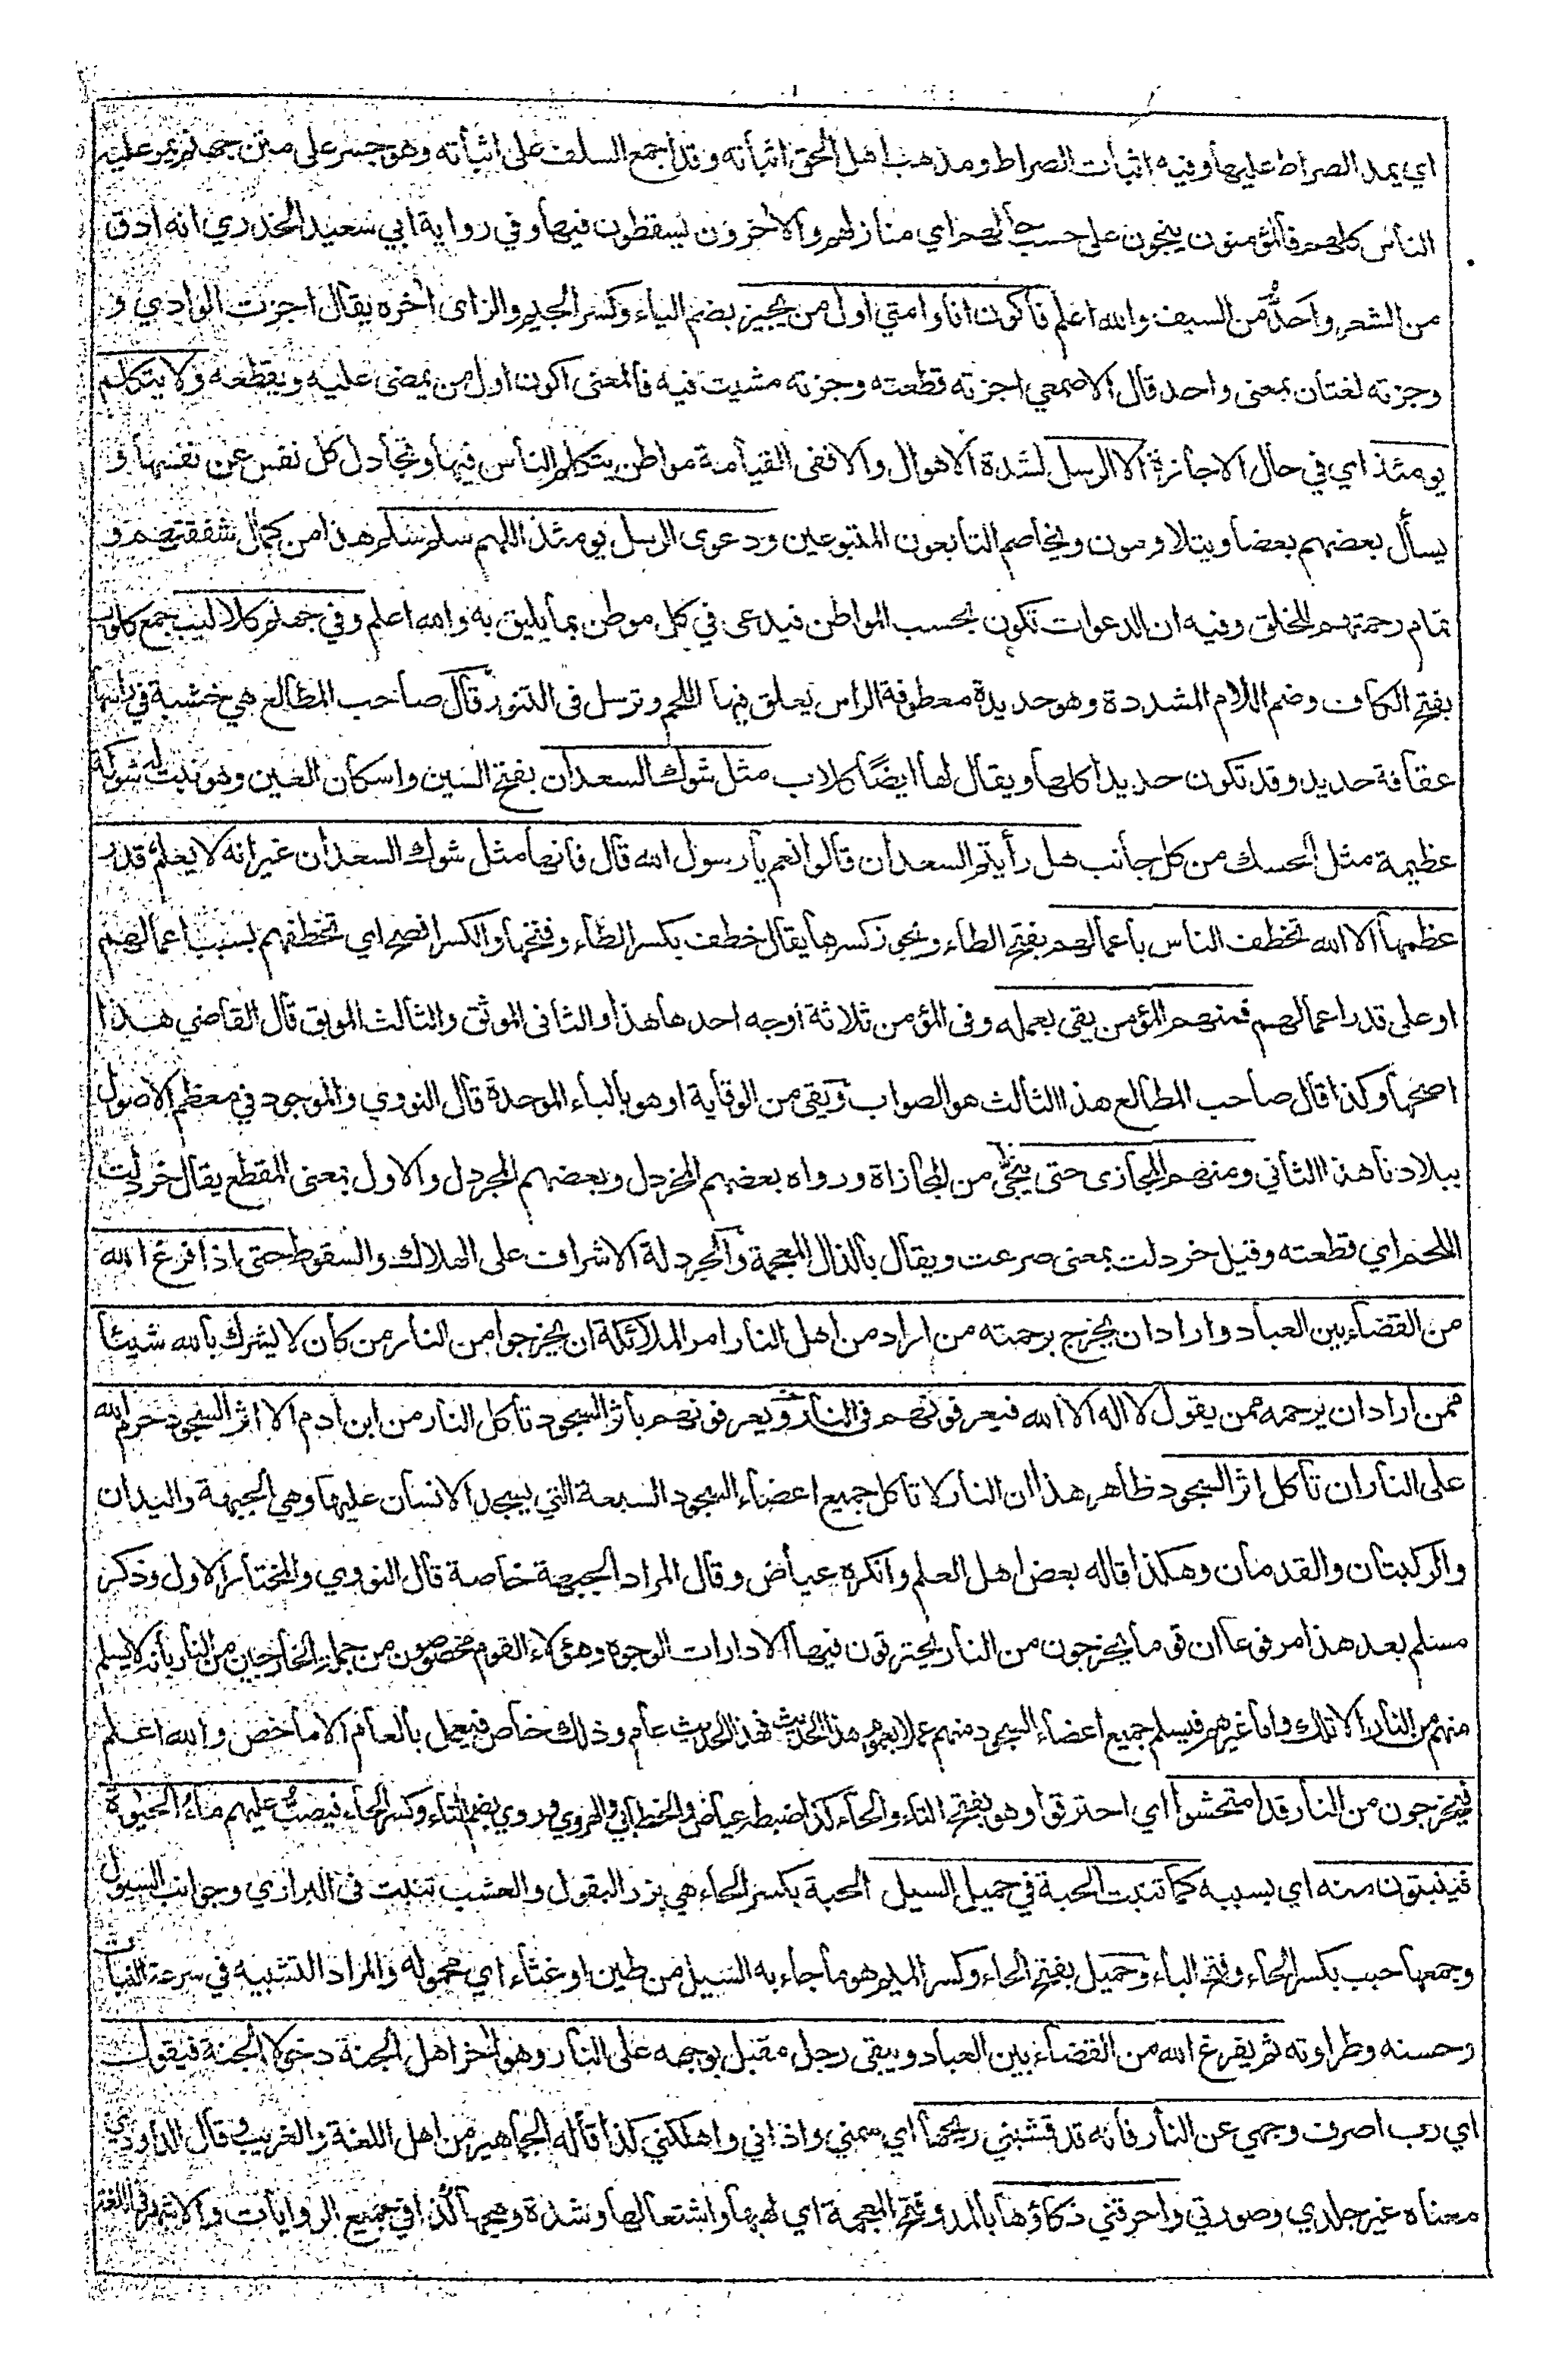 اي يمد الصراط عليها وفيه اثبات الصراط ومذهب اهل الحق اثباته وقد اجمع السلف على اثباته وهو جسر على متن جهنم يمر عليه
الناس كلهم فالمؤمنون ينجون على حسب حالهم اي منازلهم والاخرون يسقطون فيها وفي رواية ابي سعيد الخدري انه ادق
من الشعر واحدّ من السيف والله اعلم فاكون انا وامتي اول من يجيز بضم الياء وكسر الجيم والزاى اخره يقال اجزت الوادي و
وجزته لغتان بمعنى واحد قال الاصمعي اجزته قطعته وجزته مشيت فيه فالمعنى اكون اول من يمضى عليه ويقطعه ولا يتكلم
يومئذ اي في حال الاجازة الا الرسل لشدة الاهوال والا ففى القيامة مواطن يتكلم الناس فيها وتجادل كل نفس عن نفسها و
يسأل بعضهم بعضا ويتلاومون ويخاصم التابعون المتبوعين ودعوى الرسل يومئذ اللهم سلم سلم هذا من كمال شفقتهم و
تمام رحمتهم للخلق وفيه ان الدعوات تكون بحسب المواطن فيدعى في كل موطن بما يليق به والله اعلم وفي جهنم كلاليب جمع كلوب
بفتح الكاف وضم اللام المشددة وهو حديدة معطوفة الراس يعلق فيها اللحم وترسل فى التنور قال صاحب المطالع هي خشبة في راسها
عقافة حديد وقد تكون حديدا كلها ويقال لها ايضًا كلاب مثل شوك السعدان بفتح السين واسكان العين وهو نبت له شوكة
عظيمة مثل الحسك من كل جانب هل رأيتم السعدان قالوا نعم يا رسول الله قال فانها مثل شوك السعدان غير انه لا يعلم قدر
عظمها الا الله تخطف الناس باعمالهم بفتح الطاء ويجوز كسرها يقال خطف بكسر الطاء وفتحها والكسر افصح اي تخطفهم بسبب اعمالهم
او على قدر اعمالهم فمنهم المؤمن يقى بعمله وفى المؤمن ثلاثة اوجه احدها هذا والثانى الموثق والثالث الموبق قال القاضي هذا
اصحها وكذا قال صاحب المطالع هذا الثالث هو الصواب ويقى من الوقاية او هو بالباء الموحدة قال النووي والموجود في معظم الاصول
ببلادنا هذا الثاني ومنهم المجازى حتى ينجّى من المجازاة ورواه بعضهم المخردل وبعضهم المجردل والاول بمعنى المقطع يقال خردلت
اللحم اي قطعته وقيل خردلت بمعنى صرعت ويقال بالذال المعجمة والجردلة الاشراف على الهلاك والسقوط حتى اذا فرغ الله
من القضاء بين العباد واراد ان يخرج برحمته من اراد من اهل النار امر الملائكة ان يخرجوا من النار من كان لا يشرك بالله شيئا
ممن اراد ان يرحمه ممن يقول لا اله الا الله فيعرفونهم فى النار ويعرفونهم باثر السجود تاكل النار من ابن ادم الا اثر السجود حرم الله
على النار ان تاكل اثر السجود ظاهر هذا ان النار لا تاكل جميع اعضاء السجود السبعة التي يسجد الانسان عليها وهي الجبهة واليدان
والركبتان والقدمان وهكذا قاله بعض اهل العلم وانكره عياض وقال المراد الجبهة خاصة قال النووي والمختار الاول وذكر
مسلم بعد هذا مرفوعا ان قوما يخرجون من النار يحترقون فيها الا دارات الوجوه وهؤلاء القوم مخصوصون من جملة الخارجين من النار بانه لا يسلم
منهم من النار الا تلك واما غيرهم فيسلم جميع اعضاء السجود منهم عملا بعموم هذا الحديث فهذا الحديث عام وذلك خاص فيعمل بالعام الا ما خص والله اعلم
فيخرجون من النار قد امتحشوا اي احترقوا وهو بفتح التاء والحاء كذا ضبطه عياض والخطابي والهروي وروي بضم التاء وكسر الحاء فيصبّ عليهم ماء الحيوة
فينبتون منه اي بسببه كما تنبت الحبة في حميل السيل الحبة بكسر الحاء هي بزر البقول والعشب تنبت فى البراري وجوانب السيول
وجمعها حبب بكسر الحاء وفتح الباء وحميل بفتح الحاء وكسر الميم هو ما جاء به السيل من طين او غثاء اي محموله والمراد التشبيه في سرعة النبات
وحسنه وطراوته ثم يفرغ الله من القضاء بين العباد ويبقى رجل مقبل بوجهه على النار وهو اخر اهل الجنة دخولا الجنة فيقول
اي رب اصرف وجهي عن النار فانه قد قشبني ريحها اي سمني واذاني واهلكني كذا قاله الجماهير من اهل اللغة والغريب وقال الداودي
معناه غير جلدي وصورتي واحرقني ذكاؤها بالمد وفتح المعجمة اي لهبها واشتعالها وشدة وهجها كذا في جميع الروايات والاشهر فى اللغة